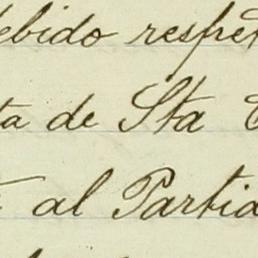 debido respet
ta de Sta
al Partia